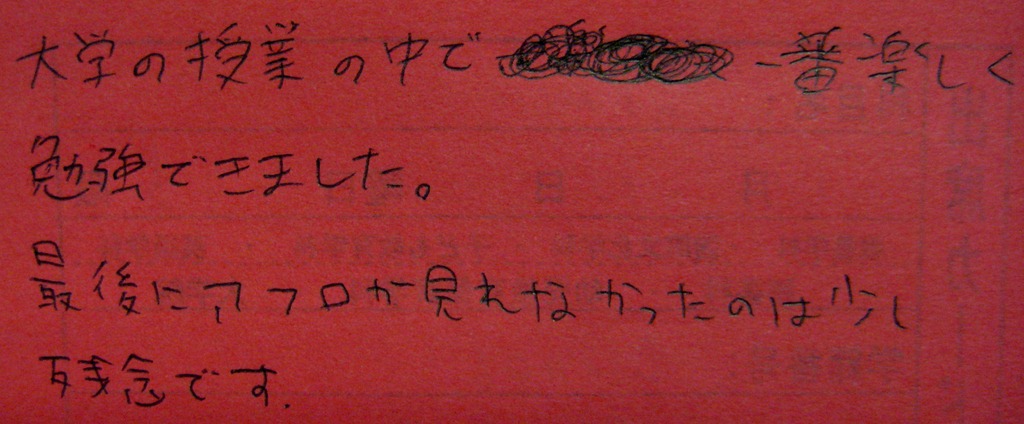 大学の授業の中で 一番楽しく
勉強できました。
最後にアフロが見れなかったのは少し
残念です.